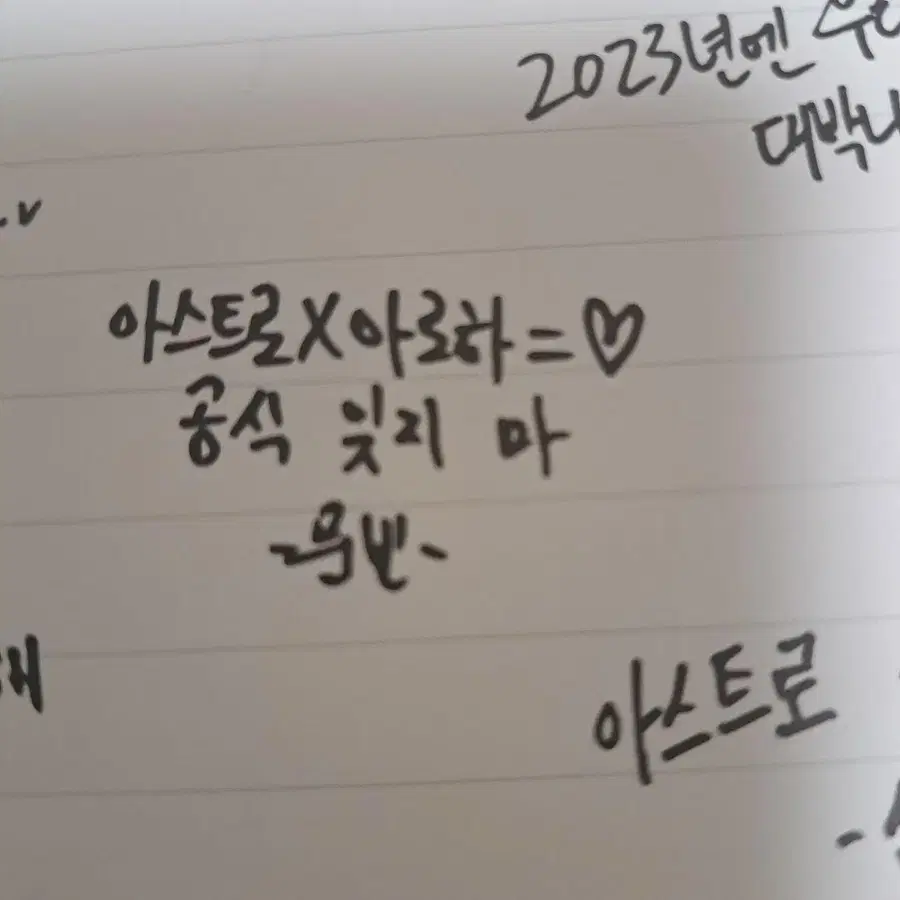 2023년엔 우
대박나
.v
아스트로X아로하=♡
공식 잊지 마
-무빈-
아스트로